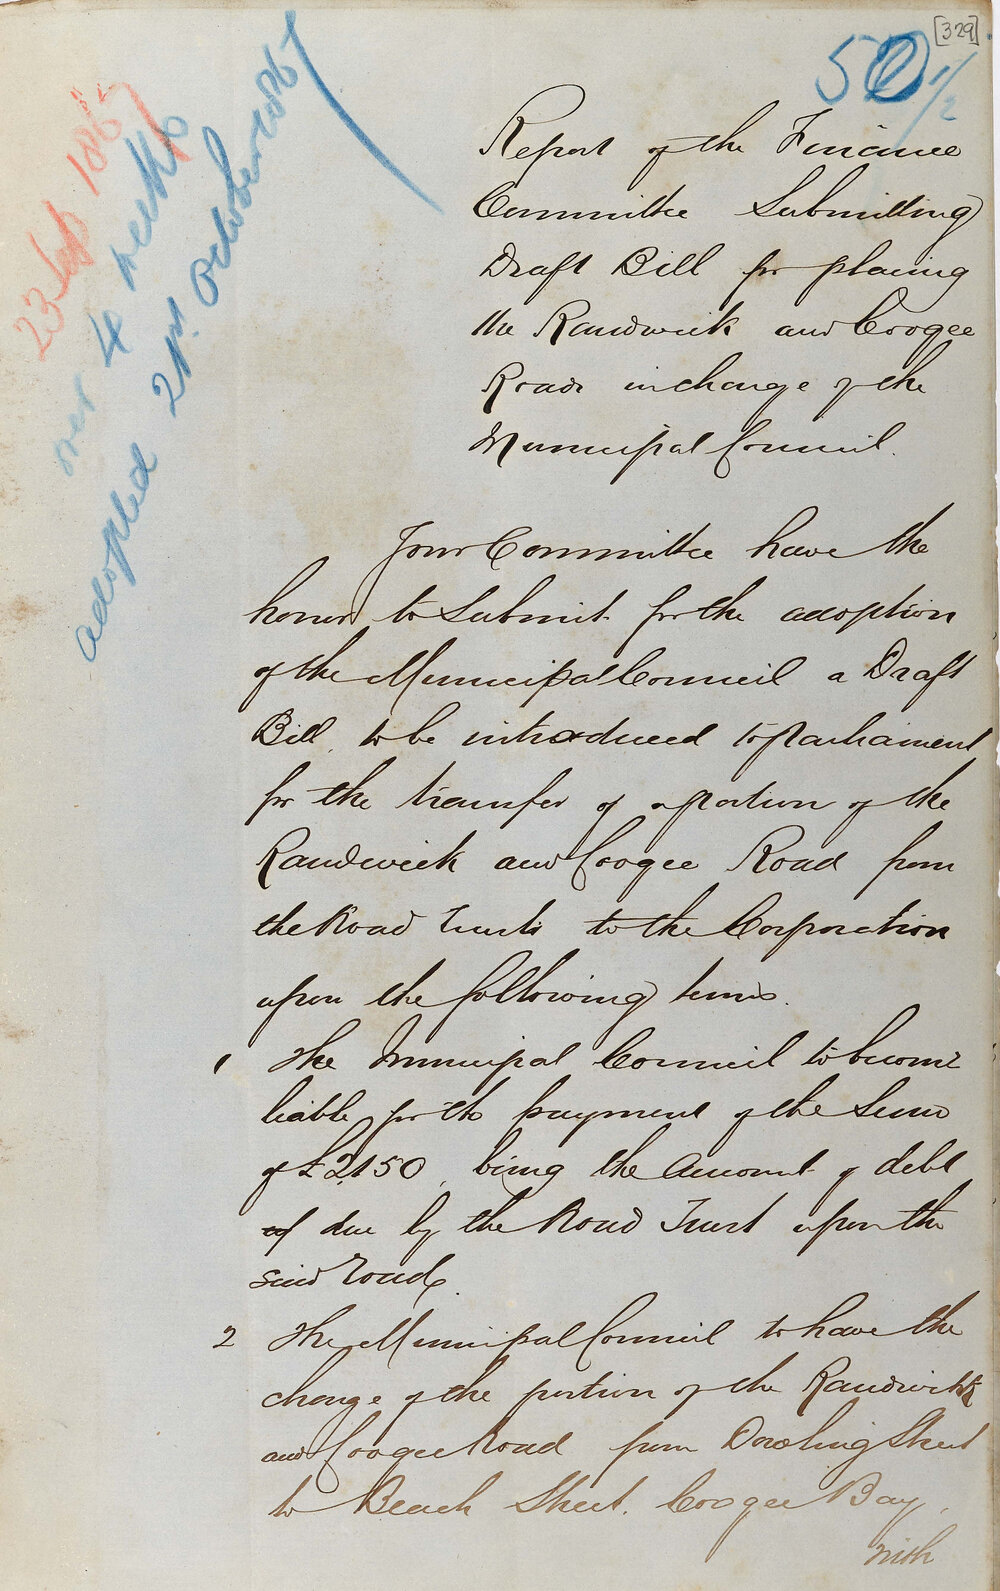 [329]
50 1/2
23 Sep 1867
over 4 weeks
adopted 21st October 1867
Report of the Finance
Committee Submitting
Draft Bill for placing
the Randwick and Coogee
Roads in charge of the
Municipal Council.
Your Committee have the
honor to Submit for the adoption
of the Municipal Council a Draft
Bill, to be introduced to Parliament
for the transfer of a portion of the
Randwick and Coogee Road from
the Road Trusts to the Corporation
upon the following terms.
1 The Municipal Council to become
liable for the payment of the Sum
of £2,150, being the Amount of debt
of due by the Road Trust upon the
said road.
2 The Municipal Council to have the
charge of the portion of the Randwick
and Coogee Road from Dowling Street
to Beach Street, Coogee Bay,
with